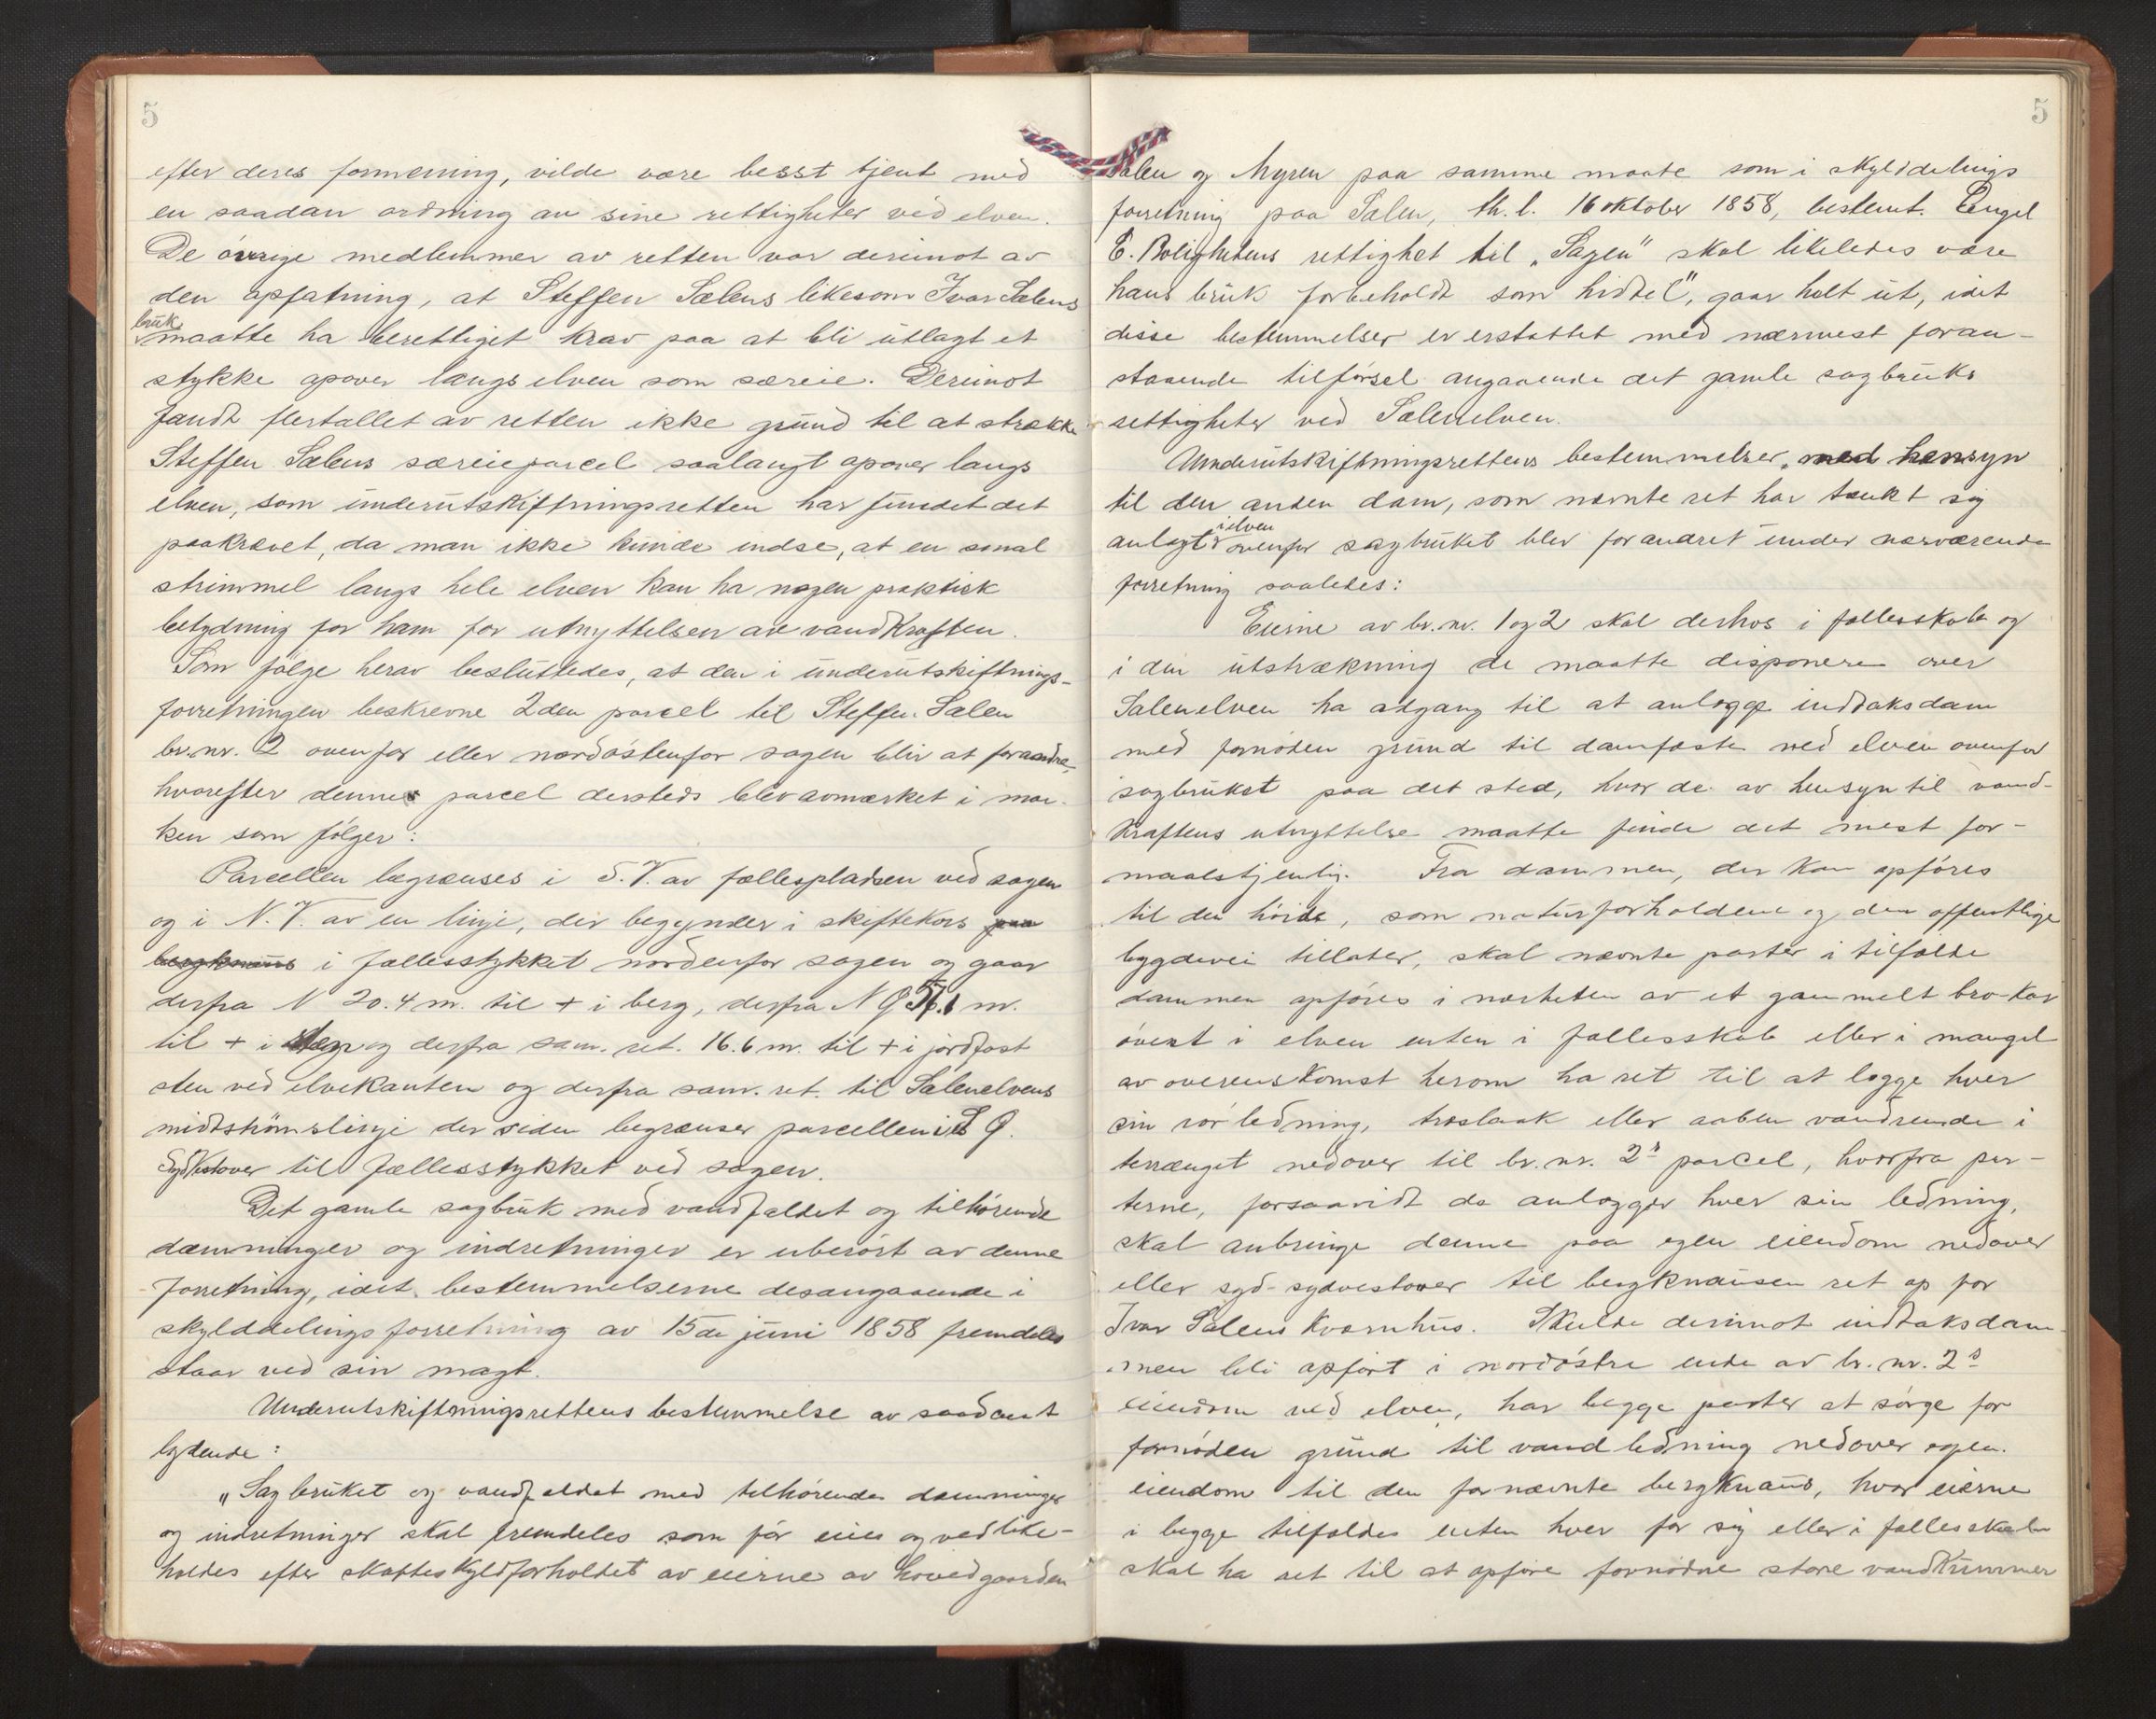 5
efter deres formening, vilde være besst tjent med
en saadan ordning av sine rettigheter ved elven.
De øvrige medlemmer av retten var derimot av
den opfatning, at Steffen Sælens likesom Ivar Sælens
bruk
maatte ha berettiget krav paa at bli utlagt et
stykke opover langs elven som særeie. Derimot
fandt flertallet av retten ikke grund til at strække
Steffen Sælens særeieparcel saalangt opover langs
elven, som underutskiftningsretten har fundet det
paakrævet, da man ikke kunde indse, at en smal
strimmel langs hele elven kan ha nogen praktisk
betydning for ham for utnyttelsen av vandkraften.
Som følge herav besluttedes, at den i underutskiftnings-
forretningen beskrevne 2den parcel til Steffen Sælen
br.nr. 2 ovenfor eller nordøstenfor sagen blir at forandre,
hvorefter denne parcel dersteds blev avmærket i mar-
ken som følger:
Parcellen begrænses i S.V. av fællespladsen ved sagen
og i N.V. av en linje, der begynder i skiftekors paa
bergknaus i fællesstykket nordenfor sagen og gaar
derfra N 20.4 m. til + i berg, derfra N Ø m.
til + i og derfra sam. ret. 16.6 m. til + i jordfast
sten ved elvekanten og derfra sam. ret. til Sælenelvens
midtstrømslinje der siden begrænser parcellen i S Ø.
Sydvestover til fællesstykket ved sagen.
Det gamle sagbruk med vandfaldet og tilhørende
dæmninger og indretninger er uberørt av denne
forretning, idet bestemmelserne desangaaende i
skylddelingsforretning av 15de juni 1858 fremdeles
staar ved sin magt.
Underutskiftningsrettens bestemmelse av saadant
lydende:
"Sagbruket og vandfaldet med tilhørende dæmninger
og indretninger skal fremdeles som før eies og vedlike-
holdes efter skatteskyldforholdet av eierne av hovedgaarden
5
Sælen og Myren paa samme maate som i skylddelings
forretning paa Sælen, th.l. 16 oktober 1858, bestemt. Engel
E. Bolighetens rettighet til "Sagen" skal likeledes være
hans bruk forbeholdt som hidtil", gaar helt ut, idet
disse bestemmelser er erstattet med nærmest foran-
staaende tilførsel angaaende det gamle sagbruks
rettigheter ved Sælenelven.
Underutskiftningsrettens bestemmelser, med hensyn
til den anden dam, som nævnte ret har tænkt sig
i elven
anlagt ovenfor sagbruket blev forandret under nærværende
forretning saaledes:
Eierne av br.nr. 1 og 2 skal derhos i fællesskab og
i den utstrækning de maatte disponere over
Sælenelven ha adgang til at anlægge inddaksdam
med fornøden grund til damfæste ved elven ovenfor
sagbruket paa det sted, hvor de av hensyn til vand-
kraftens utnyttelse maatte finde det mest for-
maalstjenlig. Fra dammen, der kan opføres
til den høide, som naturforholdene og den offentlige
bygdevei tillater, skal nævnte parter i tilfælde
dammen opføres i nærheten av et gammelt brokar
øverst i elven enten i fællesskab eller i mangel
av overenskomst herom ha ret til at lægge hver
sin rørledning, træslaak eller aaben vandrende i
terrænget nedover til br.nr. 2s parcel, hvorfra par-
terne, forsaavidt de anlægger hver sin ledning,
skal anbringe denne paa egen eiendom nedover
eller syd-sydvestover til bergknausen ret op for
Ivar Sælens kvernhus. Skulde derimot indtaksdam-
men bli opført i nordøstre ende av br.nr. 2s
eiendom ved elven, har begge parter at sørge for
fornøden grund til vandledning nedover egen
eiendom til den fornævnte bergknaus, hvor eierne
i begge tilfælde enten hver for sig eller i fællesskab
skal ha ret til at opføre fornødne store vandkummer